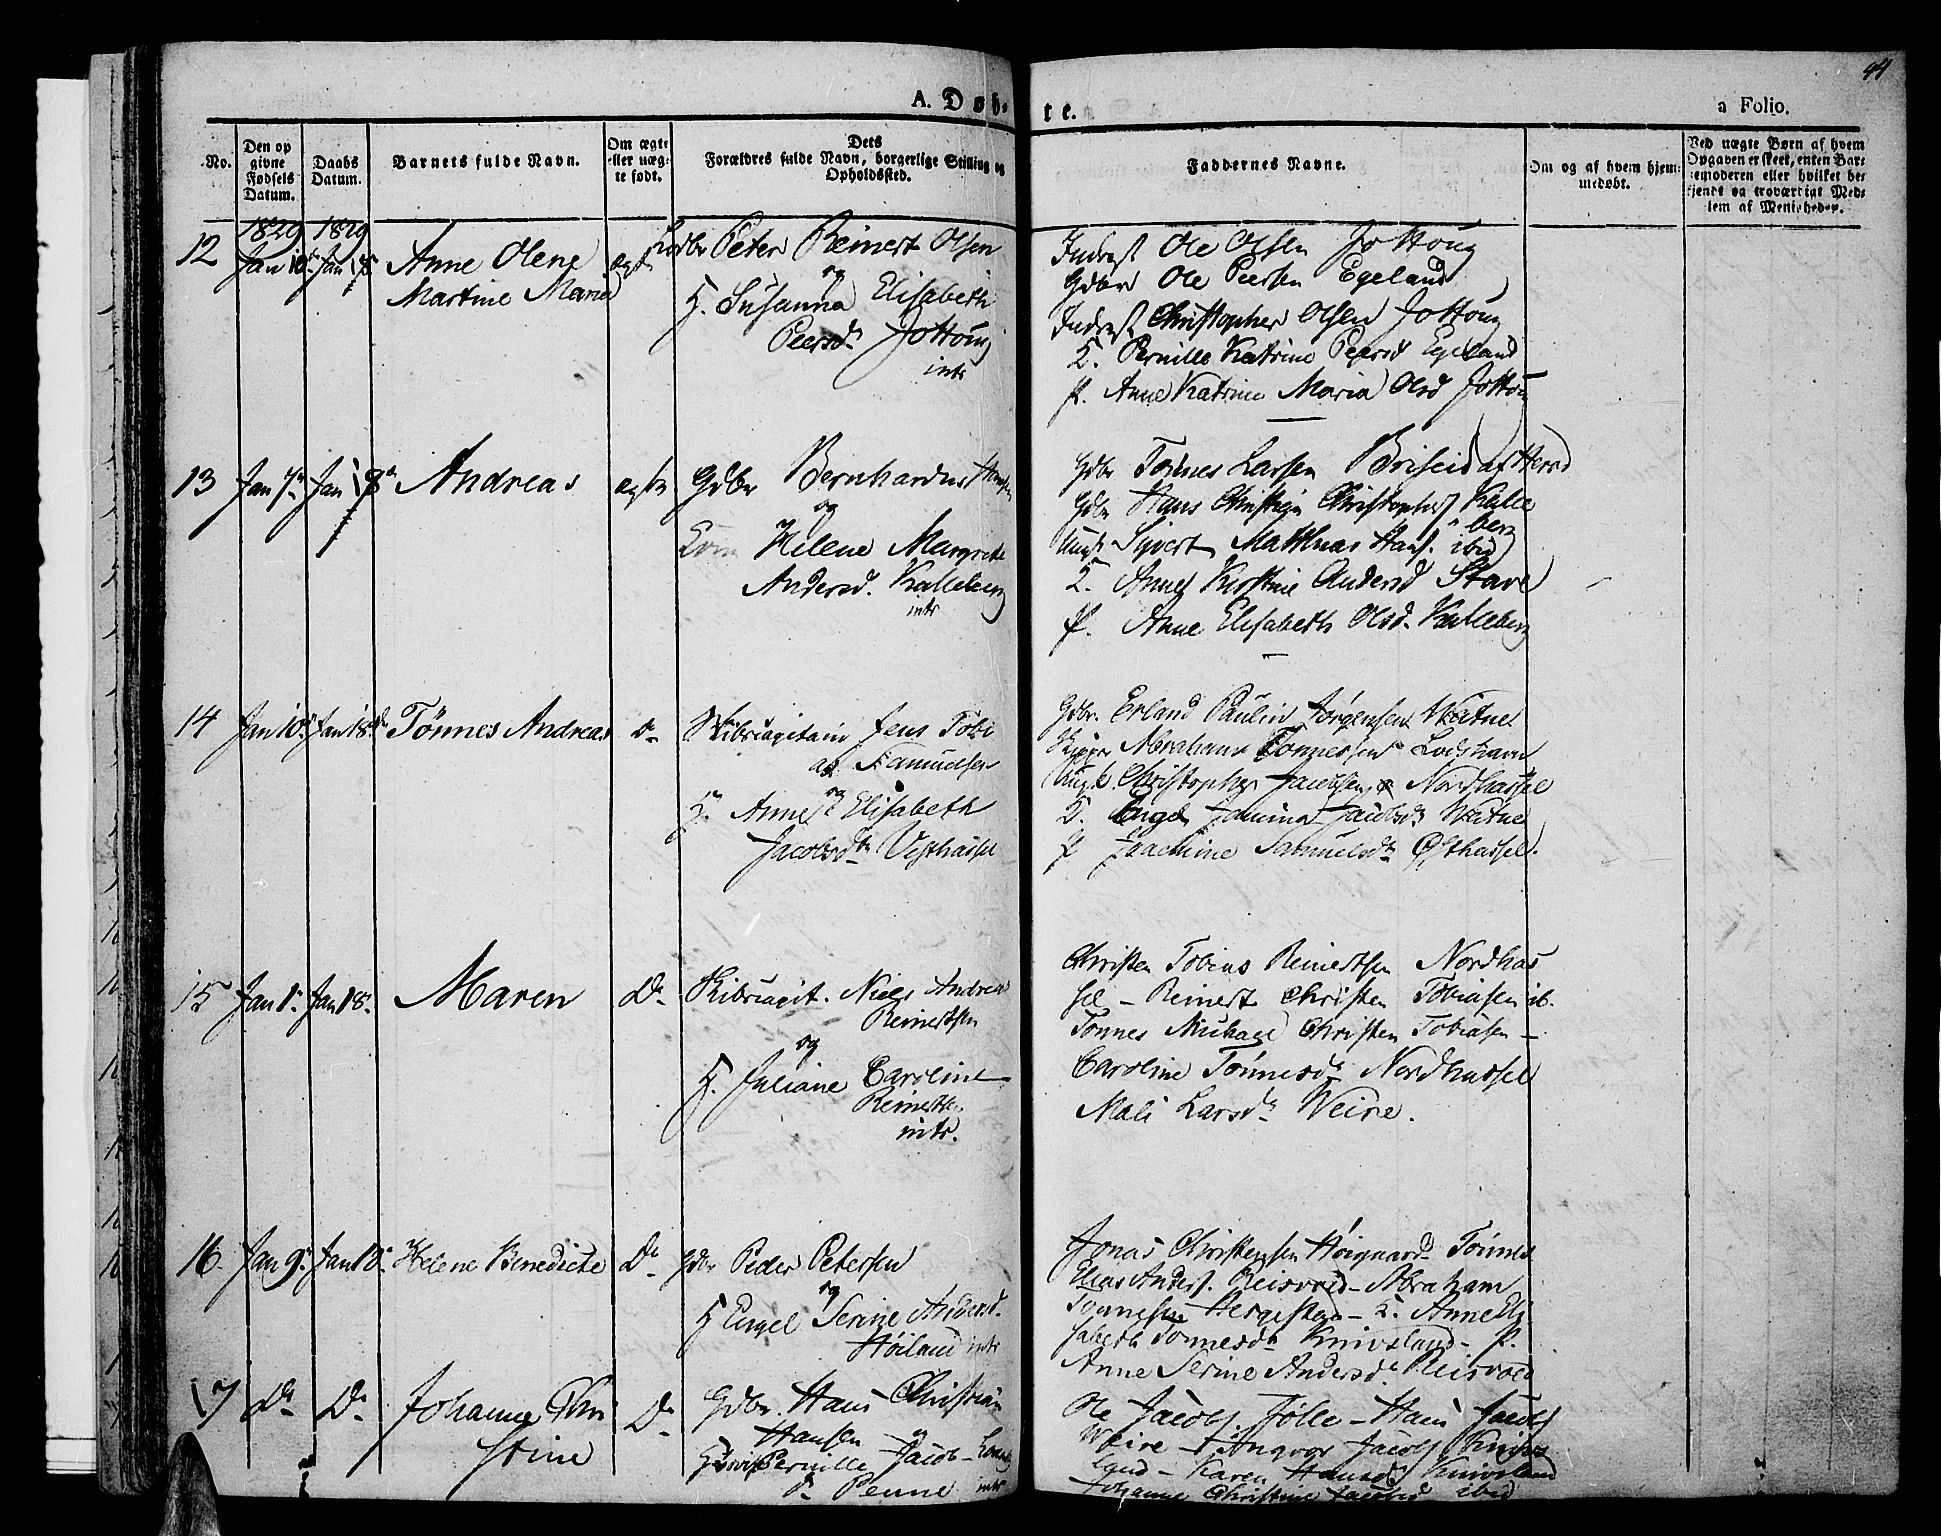 44
A. Døb-
te.
a Folio.
No.
Den op
givne
Fødsels
Datum.
Daabs
Datum.
Barnets fulde Navn.
Om ægte
eller uæg-
te født.
Dets
Forældres fulde Navn, borgerlige Stilling og
Opholdssted.
Faddernes Navne.
Om og af hvem hjem-
medøbt.
Ved uægte Børn af hvem
Opgaven er skeet, enten Bar-
nemoderen eller hvilket be-
kjendt og troværdigt Med-
lem af Menigheden.
1829 1829
12 Jan 10 Jan 18 Anne Olene
Martine Maria
Peter Reinert Olsen
og
H. Susanna Elisabeth
Peersd.
intr
Ole Olsen
Gdbr Ole Peersen Egeland
Christopher Olsen
Pernille Katrine Peersd Egeland
P. Anne Katrine Maria Olsd
13 Jan 7 Jan 18 Andreas ægte Gdbr Bernhardus Hansen
og
Helene Margrete
Andersd. Kalleberg
intr
Gdbr Tønnes Larsen Briseid af Herred
Gdbr Hans Christian Christophers Kalle
berg
Sivert Matthias Hans. ibid
Anne Kirstine Andersd Stave
P. Anne Elisabeth Olsd. Kalleberg
14 Jan 10 Jan 18 Tønnes Andreas Do Jens Tobi
as Samuelsen
og
H. Anne Elisabeth
Jacobsdr Vesthassel
Gdbr. Erland Paulin Jørgensen
Abraham Tønnesen Lodshavn
Christopher Jacobsen Nordhassel
Engel Jacobsdr
P Joachime Samuelsdr Østhassel.
15 Jan 1 Jan 18 Maren Do Niels Andreas
Reinertsen
og
H. Juliane Caroline
Reinertsen
intr.
Christen Tobias Reinertsen Nordhas
sel - Reinert Christen Tobiasen ib.
Tønnes Michael Christen Tobiasen -
Caroline Tønnesdr Nordhassel
Mali Larsdr Weire.
16 Jan 9 Jan 18 Helene Benedicte Do Gdbr Peder Petersen
og
H Engel Serine Andersd.
Høiland intr
Jonas Christensen Høigaard Tønnes
Elias Anders. Reisvoed - Abraham
Tønnesen - Anne Eli
sabeth Tønnesdr Knivsland - P.
Anne Serine Andersdr Reisvoed
17 Do Do Johanne Chri
stine
Do Gdbr. Hans Christian
Hansen
Pernille Jacob
Penne intr
Ole Jacobs. Jølle - Hans Jacobs
Weire - Jacobs Knivs
land - Karen Hansdr Knivsland
Johanne Christine Jacobsd ibid